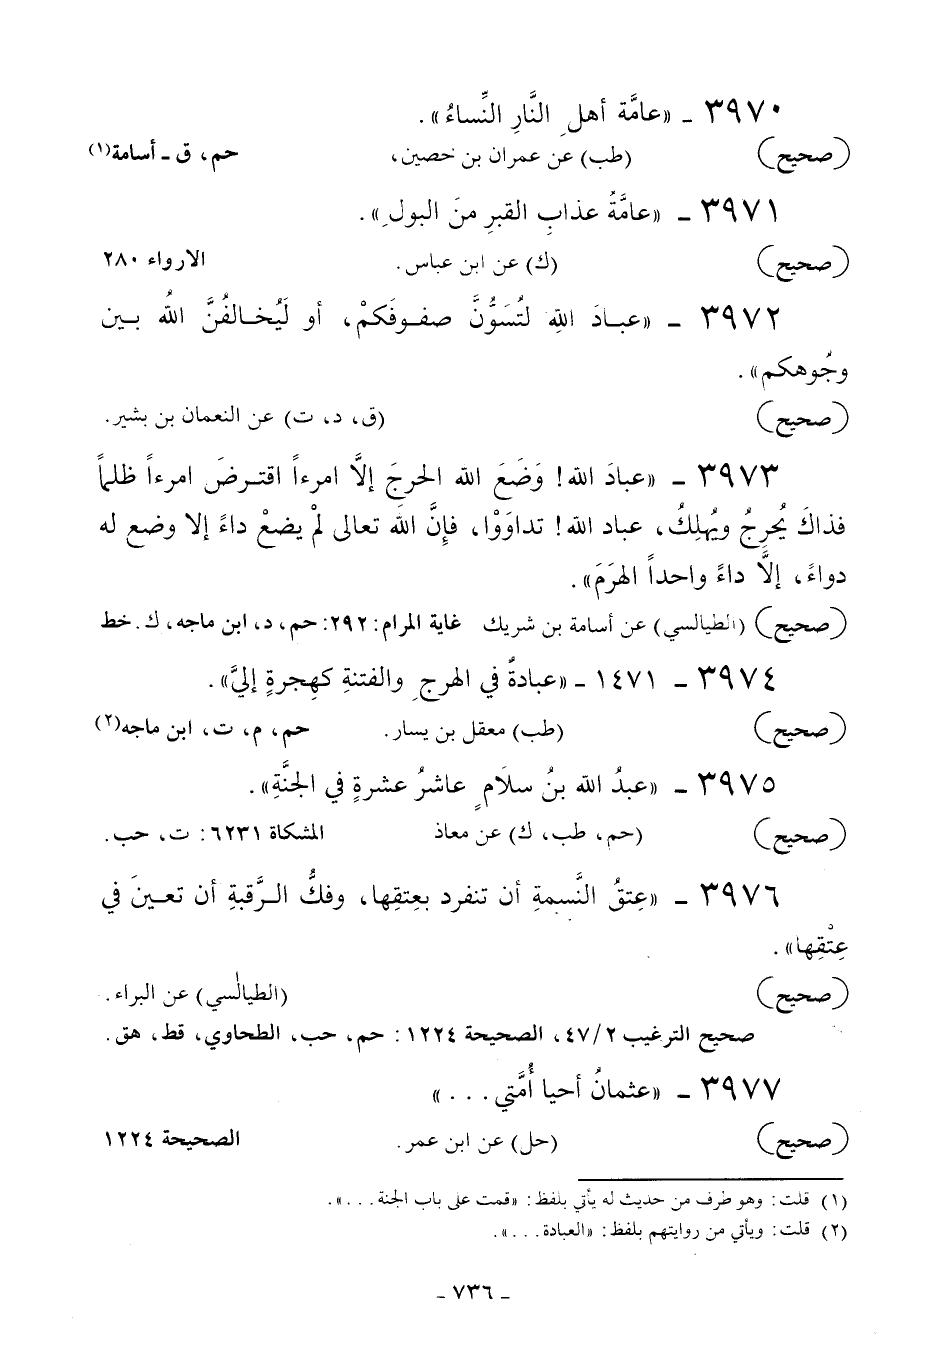 ٣٩٧٠ ـ «عامَّة أهلِ النَّارِ النِّساءُ».
(صحيح) (طب) عن عمران بن حصين، حم، ق ـ أسامة(١)
٣٩٧١ ـ «عامَّةُ عذابِ القبرِ منَ البولِ».
(صحيح) (ك) عن ابن عباس. الارواء ٢٨٠
٣٩٧٢ ـ «عبادَ اللهِ لتُسَوُّنَّ صفوفَكمْ، أو لَيُخالفُنَّ اللهُ بين
وجُوهكم».
(صحيح) (ق، د، ت) عن النعمان بن بشير.
٣٩٧٣ ـ «عبادَ الله! وَضَعَ الله الحرجَ إلَّا امرءاً اقترضَ امرءاً ظلماً
فذاكَ يُحرِجُ ويُهلِكُ، عباد الله! تداوَوْا، فإنَّ اللهَ تعالى لمْ يضعْ داءً إلا وضع له
دواءً، إلَّا داءً واحداً الهَرَمَ».
(صحيح) (الطيالسي) عن أسامة بن شريك غاية المرام: ٢٩٢: حم، د، ابن ماجه، ك. خط
٣٩٧٤ ـ ١٤٧١ ـ «عبادةٌ في الهرجِ والفتنةِ كهِجرةٍ إليَّ».
(صحيح) (طب) معقل بن يسار. حم، م، ت، ابن ماجه(٢)
٣٩٧٥ ـ «عبدُ الله بنُ سلَامٍ عاشرُ عشرةٍ في الجنَّةِ».
(صحيح) (حم، طب، ك) عن معاذ المشكاة ٦٢٣١: ت، حب.
٣٩٧٦ ـ «عِتقُ النَّسمةِ أن تنفرد بعِتقِها، وفكُّ الرَّقبةِ أن تعينَ في
عِتْقِها».
(صحيح) (الطيالسي) عن البراء.
صحيح الترغيب ٤٧/٢، الصحيحة ١٢٢٤: حم، حب، الطحاوي، قط، هق.
٣٩٧٧ ـ «عثمانُ أحيا أُمَّتي...»
(صحيح) (حل) عن ابن عمر. الصحيحة ١٢٢٤
(١) قلت: وهو طرف من حديث له يأتي بلفظ: «قمت على باب الجنة...».
(٢) قلت: ويأتي من روايتهم بلفظ: «العبادة...».
ـ ٧٣٦ ـ